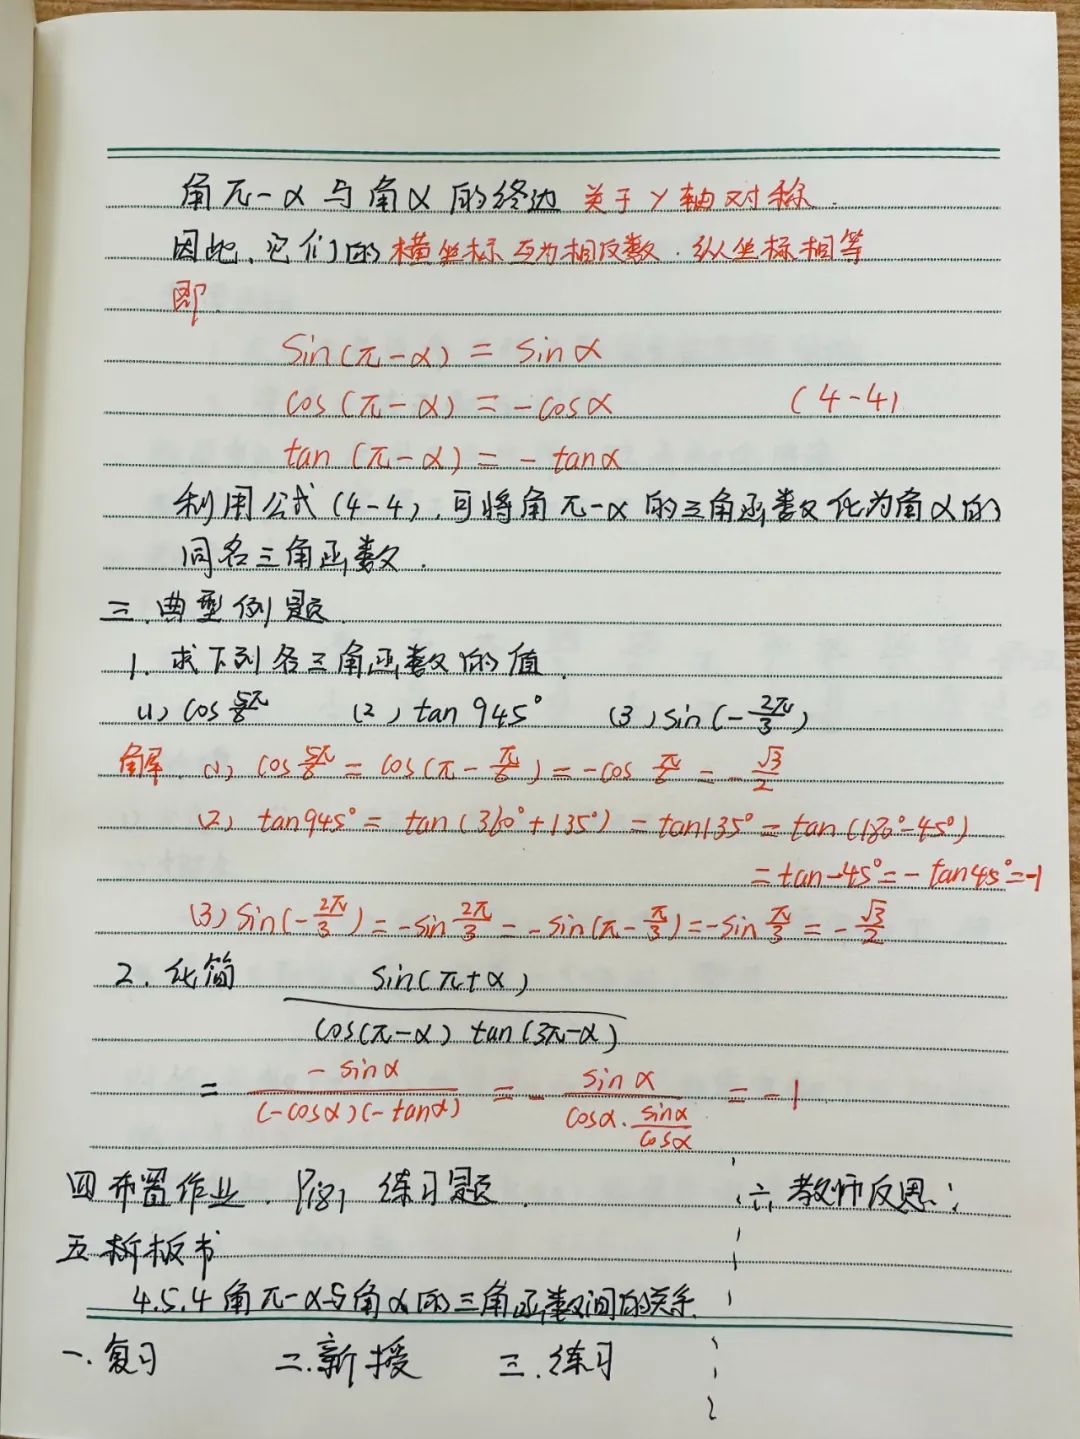 角π-α与角α的终边 关于y轴对称.
因此,它们的横坐标互为相反数.纵坐标相等
即
Sin(π-α) = sinα
cos(π-α) = -cosα (4-4)
tan(π-α) = - tanα
利用公式(4-4),可将角π-α的三角函数化为角α的
同名三角函数.
三.典型例题.
1. 求下列各三角函数的值.
(1) cos 5π/6 (2) tan 945° (3) sin(-2π/3)
解.(1) cos 5π/6 = cos(π-π/6) = -cos π/6 = -√3/2
(2) tan945° = tan(360°+135°) = tan135° = tan(180°-45°)
= tan-45° = - tan45° = -1
(3) sin(-2π/3) = -sin 2π/3 = -sin(π-π/3) = -sin π/3 = -√3/2
2. 化简 sin(π+α)
cos(π-α) tan(3π-α)
= -sinα/(-cosα)(-tanα) = - sinα/(cosα·sinα/cosα) = -1
四布置作业. P181 练习题. 六教师反思:
五 板书
4.5.4角π-α与角α的三角函数间的关系
一.复习 二.新授 三.练习